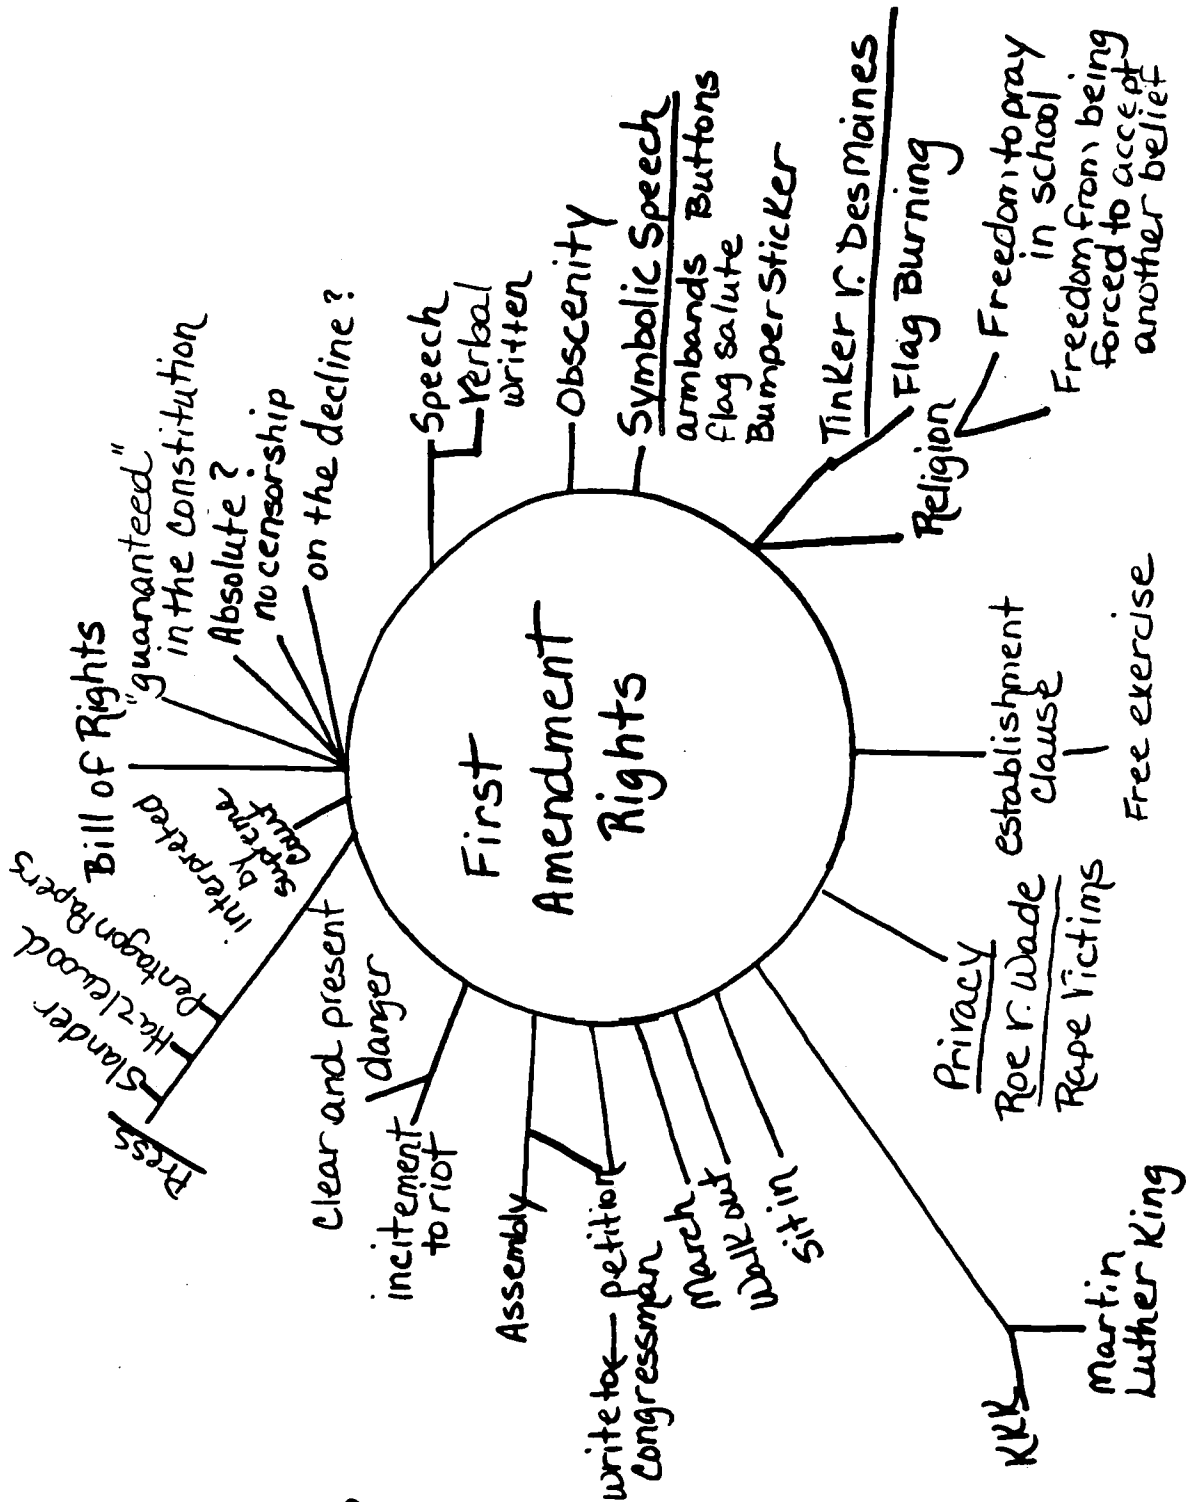 First
Amendment
Rights
Bill of Rights
"guananteed"
in the constitution
Absolute?
no censorship
on the decline?
Speech
Verbal
written
Obscenity
Symbolic Speech
armbands Buttons
flag salute
Bumper Sticker
Tinker v. Des Moines
Flag Burning
Religion
Freedom to pray
in school
Freedom from being
forced to accept
another belief
establishment
clause
Free exercise
Privacy
Roe v. Wade
Rape Victims
KKK
Martin
Luther King
Sit in
Walkout
March
petition
write to
congressman
Assembly
incitement
to riot
Clear and present
danger
Press
Slander
Hazlewood
Pentagon Papers
interpreted
by
supreme
court